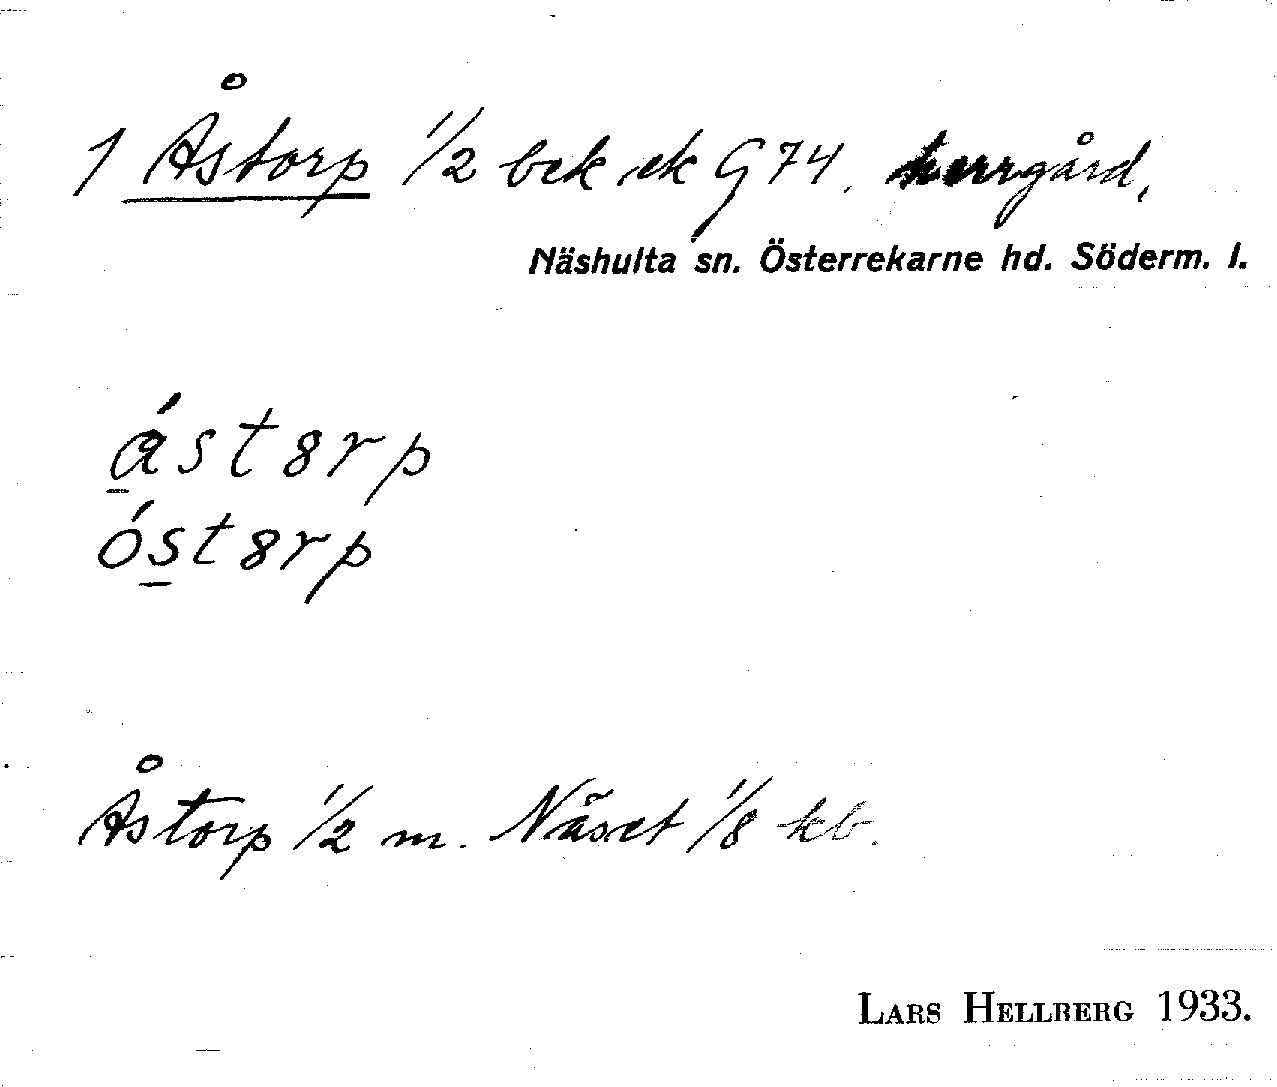 1 Åstorp 1/2 bek ek G 74. herrgård,
Näshulta sn. Österrekarne hd. Söderm. l.
ást8rp
óst8rp
Åstorp 1/2 m. Näset 1/8 kb.
LARS HELLBERG 1933.